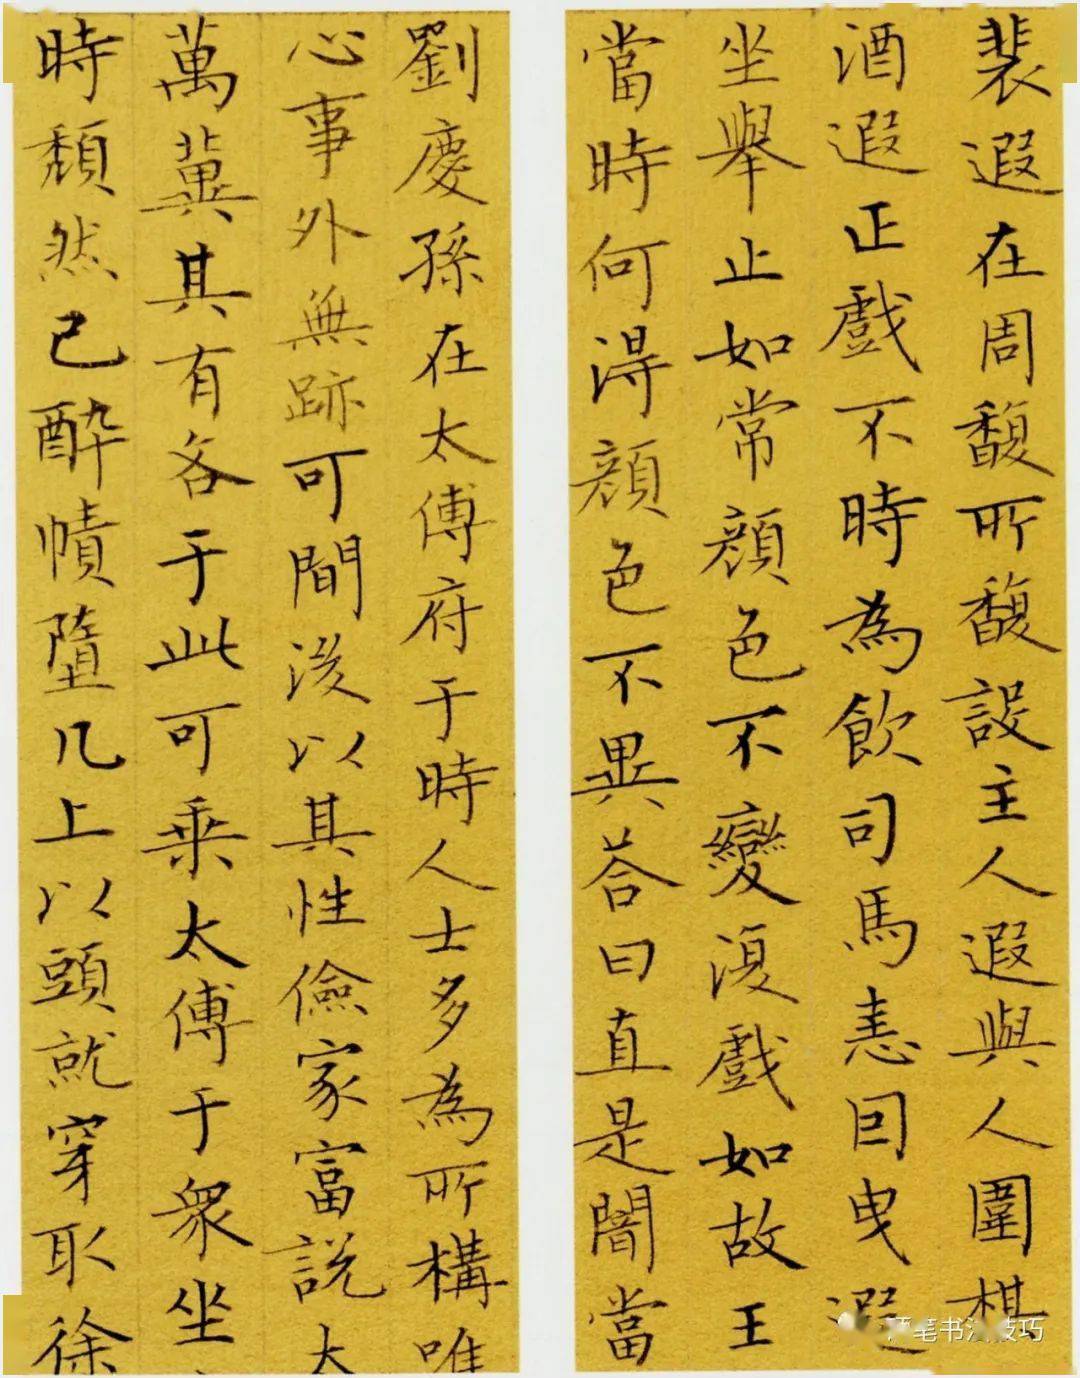 裴遐在周馥所馥設主人遐與人圍棋
酒遐正戲不時為飲司馬恚囙曳遐
坐舉止如常顏色不變復戲如故王
當時何得顏色不異荅曰直是闇當
劉慶孫在太傅府于時人士多為所構唯
心事外無跡可間後以其性儉家富說太
萬冀其有各于此可乘太傅于眾坐
時頹然已醉幘墮几上以頭就穿取徐
笔书法技巧